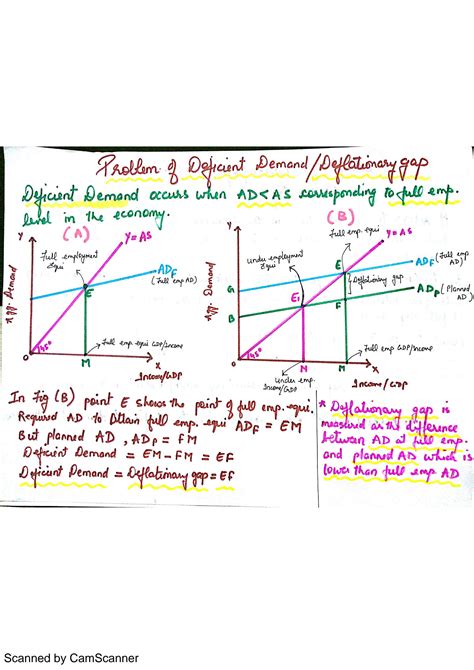 Problem of Deficient Demand/Deflationary gap
Deficient Demand occurs when AD<AS corresponding to full emp.
level in the economy.
(A)
Y
Y=AS
Full employment
Equi
ADF
(Full emp AD)
E
Agg. Demand
45°
Full emp equi GDP/Income
O
M
X
Income/GDP
(B)
Y
Full emp. equi
Y=AS
Under employment
Equi
E
ADF (Full emp AD)
Deflationary gap
G
E1
ADP (Planned AD)
B
F
Agg. Demand
45°
Full emp GDP/Income
O
N
M
X
Under emp.
Income/GDP
Income/GDP
In Fig (B) point E shows the point of full emp. equi.
Required AD to Attain full emp. equi ADF = EM
But planned AD, ADP = FM
Deficient Demand = EM-FM = EF
Deficient Demand = Deflationary gap = EF
* Deflationary gap is
measured as the difference
between AD at full emp.
and planned AD which is
lower than full emp AD
Scanned by CamScanner